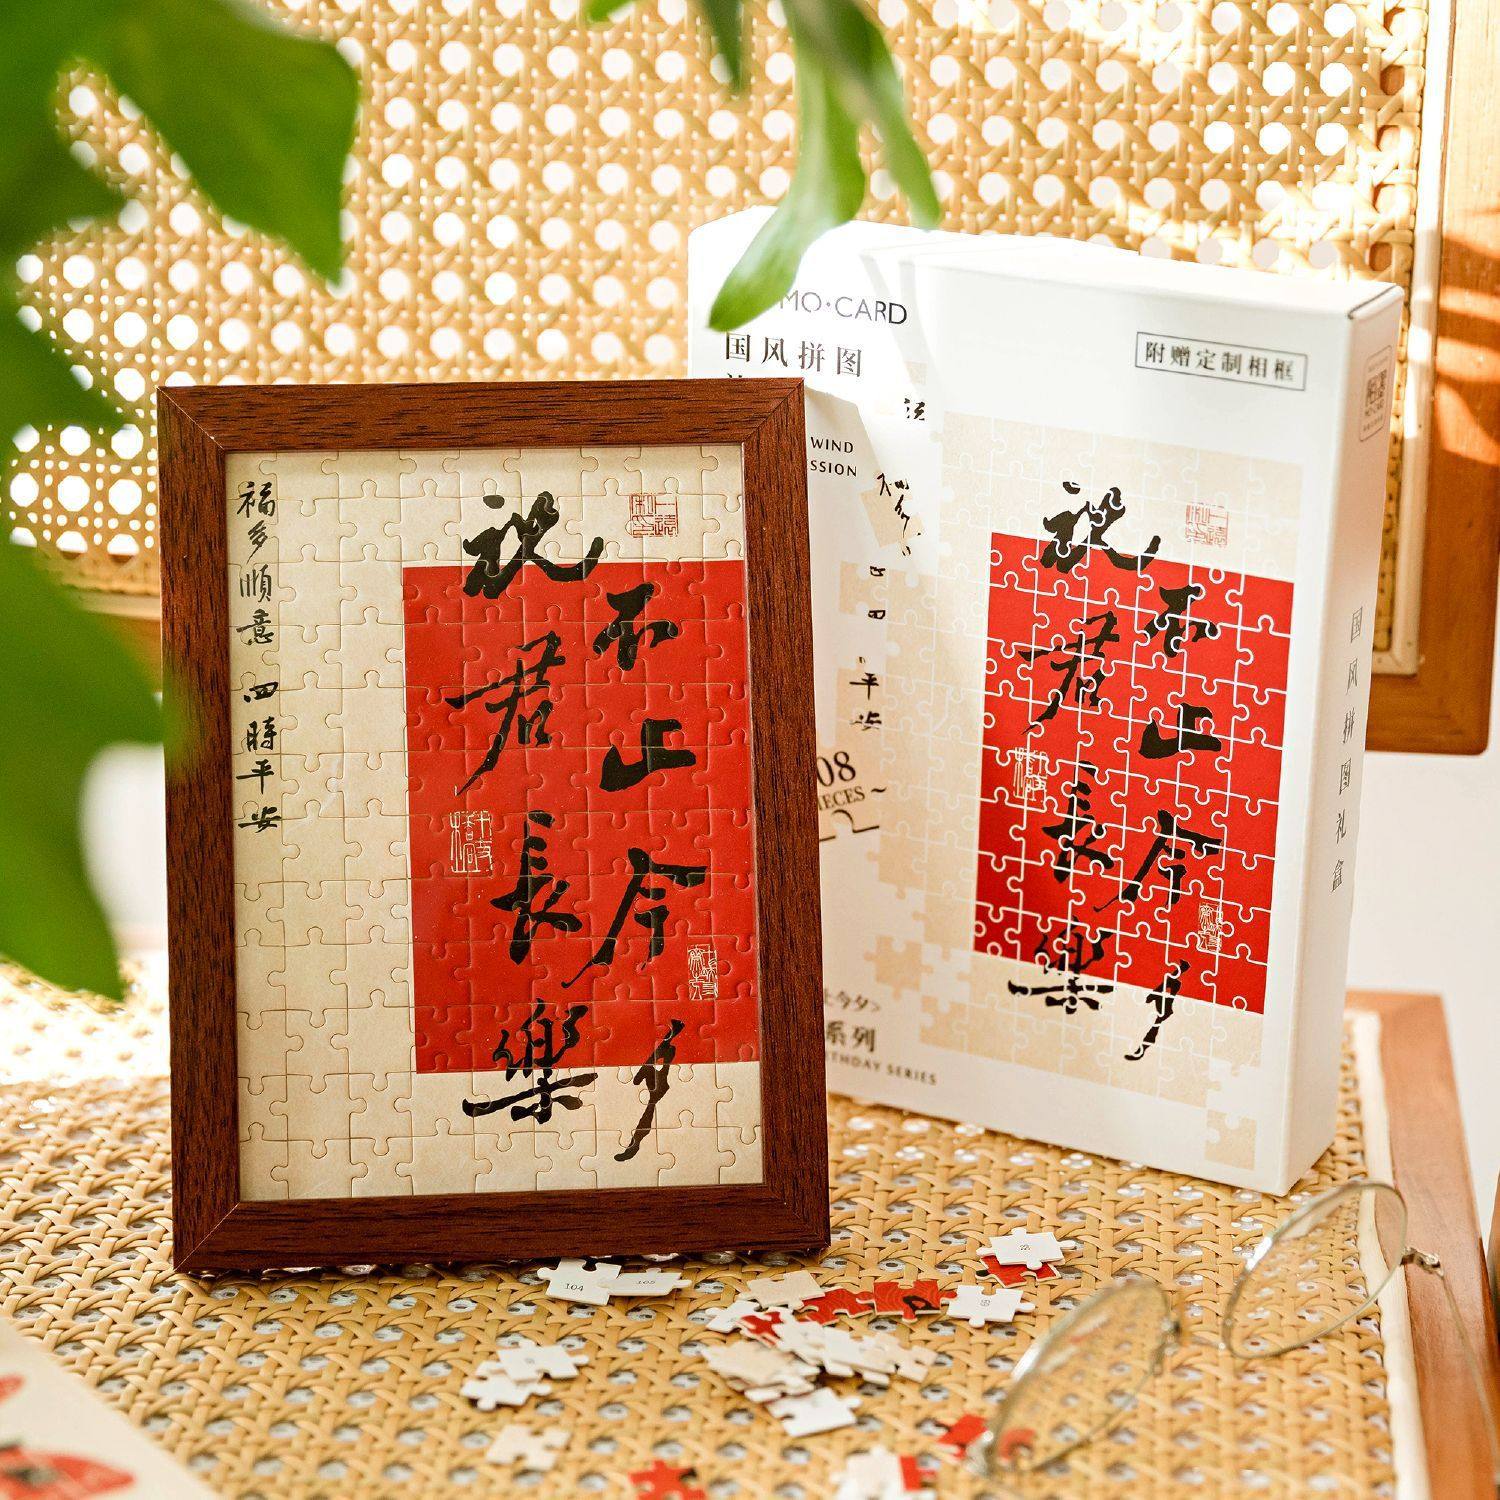 福多順意
四時平安
祝君長樂
不止今夕
104
105
MO·CARD
国风拼图
WIND
SSION
08
PIECES ~
止今夕>
系列
BIRTHDAY SERIES
附赠定制相框
祝君長樂
不止今夕
国风拼图礼盒